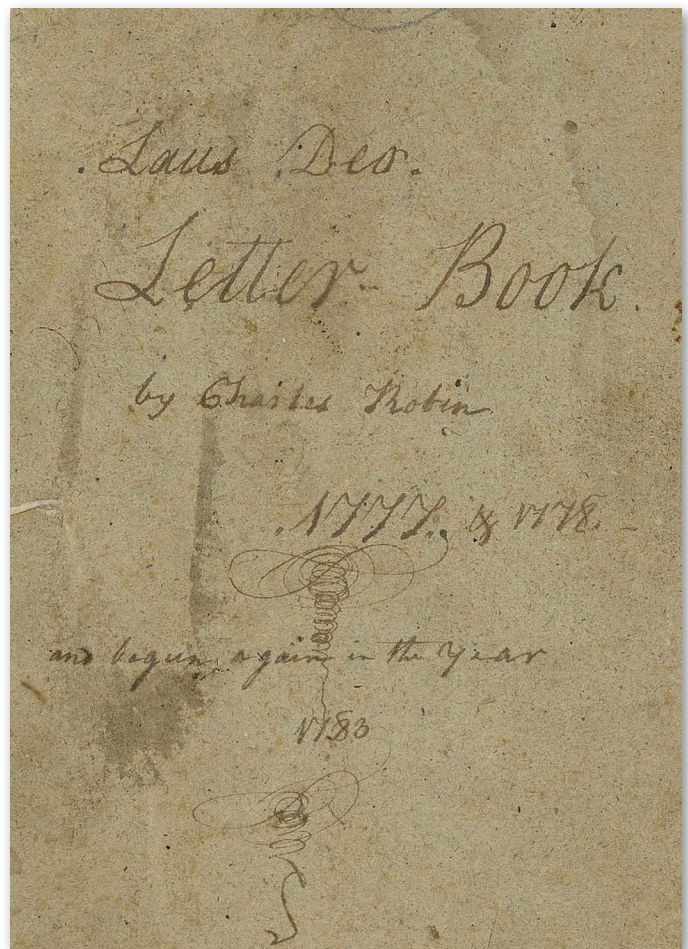 Laus Deo.
Letter Book.
by Charles Robin
1777. & 1778.
and begun again in the Year
1783